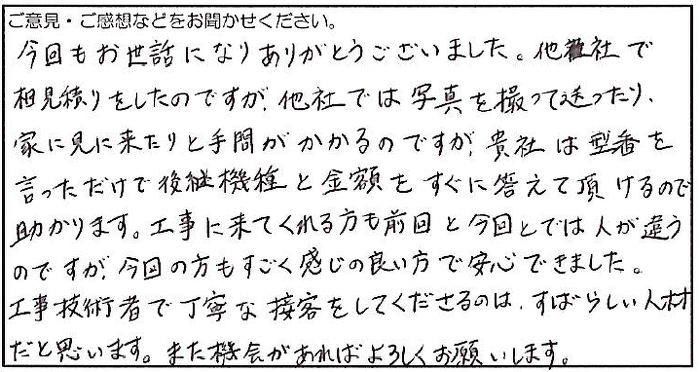 ご意見・ご感想などをお聞かせください。
今回もお世話になりありがとうございました。他社で
相見積りをしたのですが、他社では写真を撮って送ったり、
家に見に来たりと手間がかかるのですが、貴社は型番を
言っただけで後継機種と金額をすぐに答えて頂けるので
助かります。工事に来てくれる方も前回と今回とでは人が違う
のですが、今回の方もすごく感じの良い方で安心できました。
工事技術者で丁寧な接客をしてくださるのは、すばらしい人材
だと思います。また機会があればよろしくお願いします。